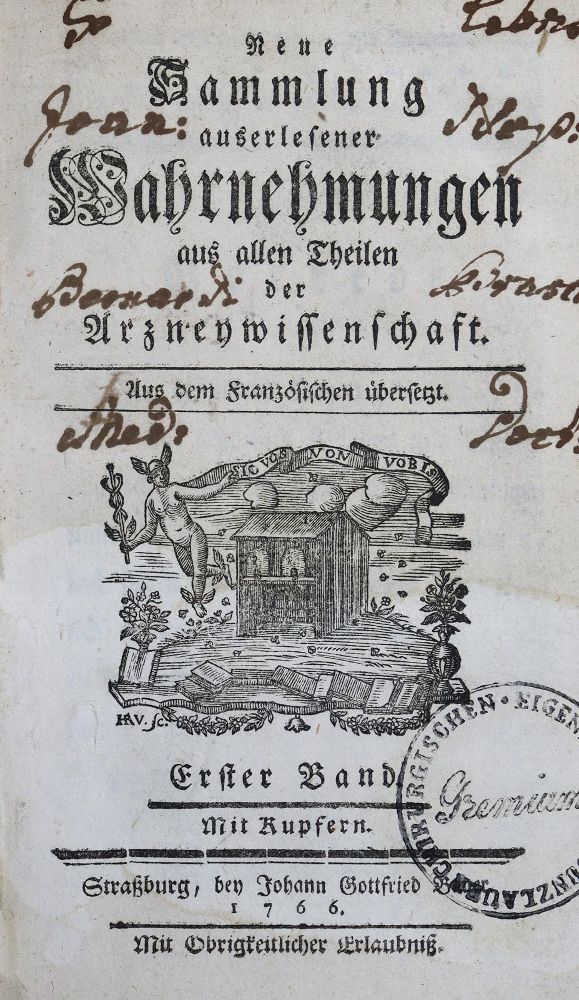 Neue
Sammlung
auserlesener
Wahrnehmungen
aus allen Theilen
der
Arzneywissenschaft.
Aus dem Französischen übersetzt.
Joan:
Nep:
Bernardi
Med:
SIC VOS NON VOBIS
HAV. sc.
Erster Band
Mit Kupfern.
Straßburg, bey Johann Gottfried Bauer
1766.
Mit Obrigkeitlicher Erlaubniß.
CHIRURGISCHEN · EIGEN
Gremium
BUNZLAUER